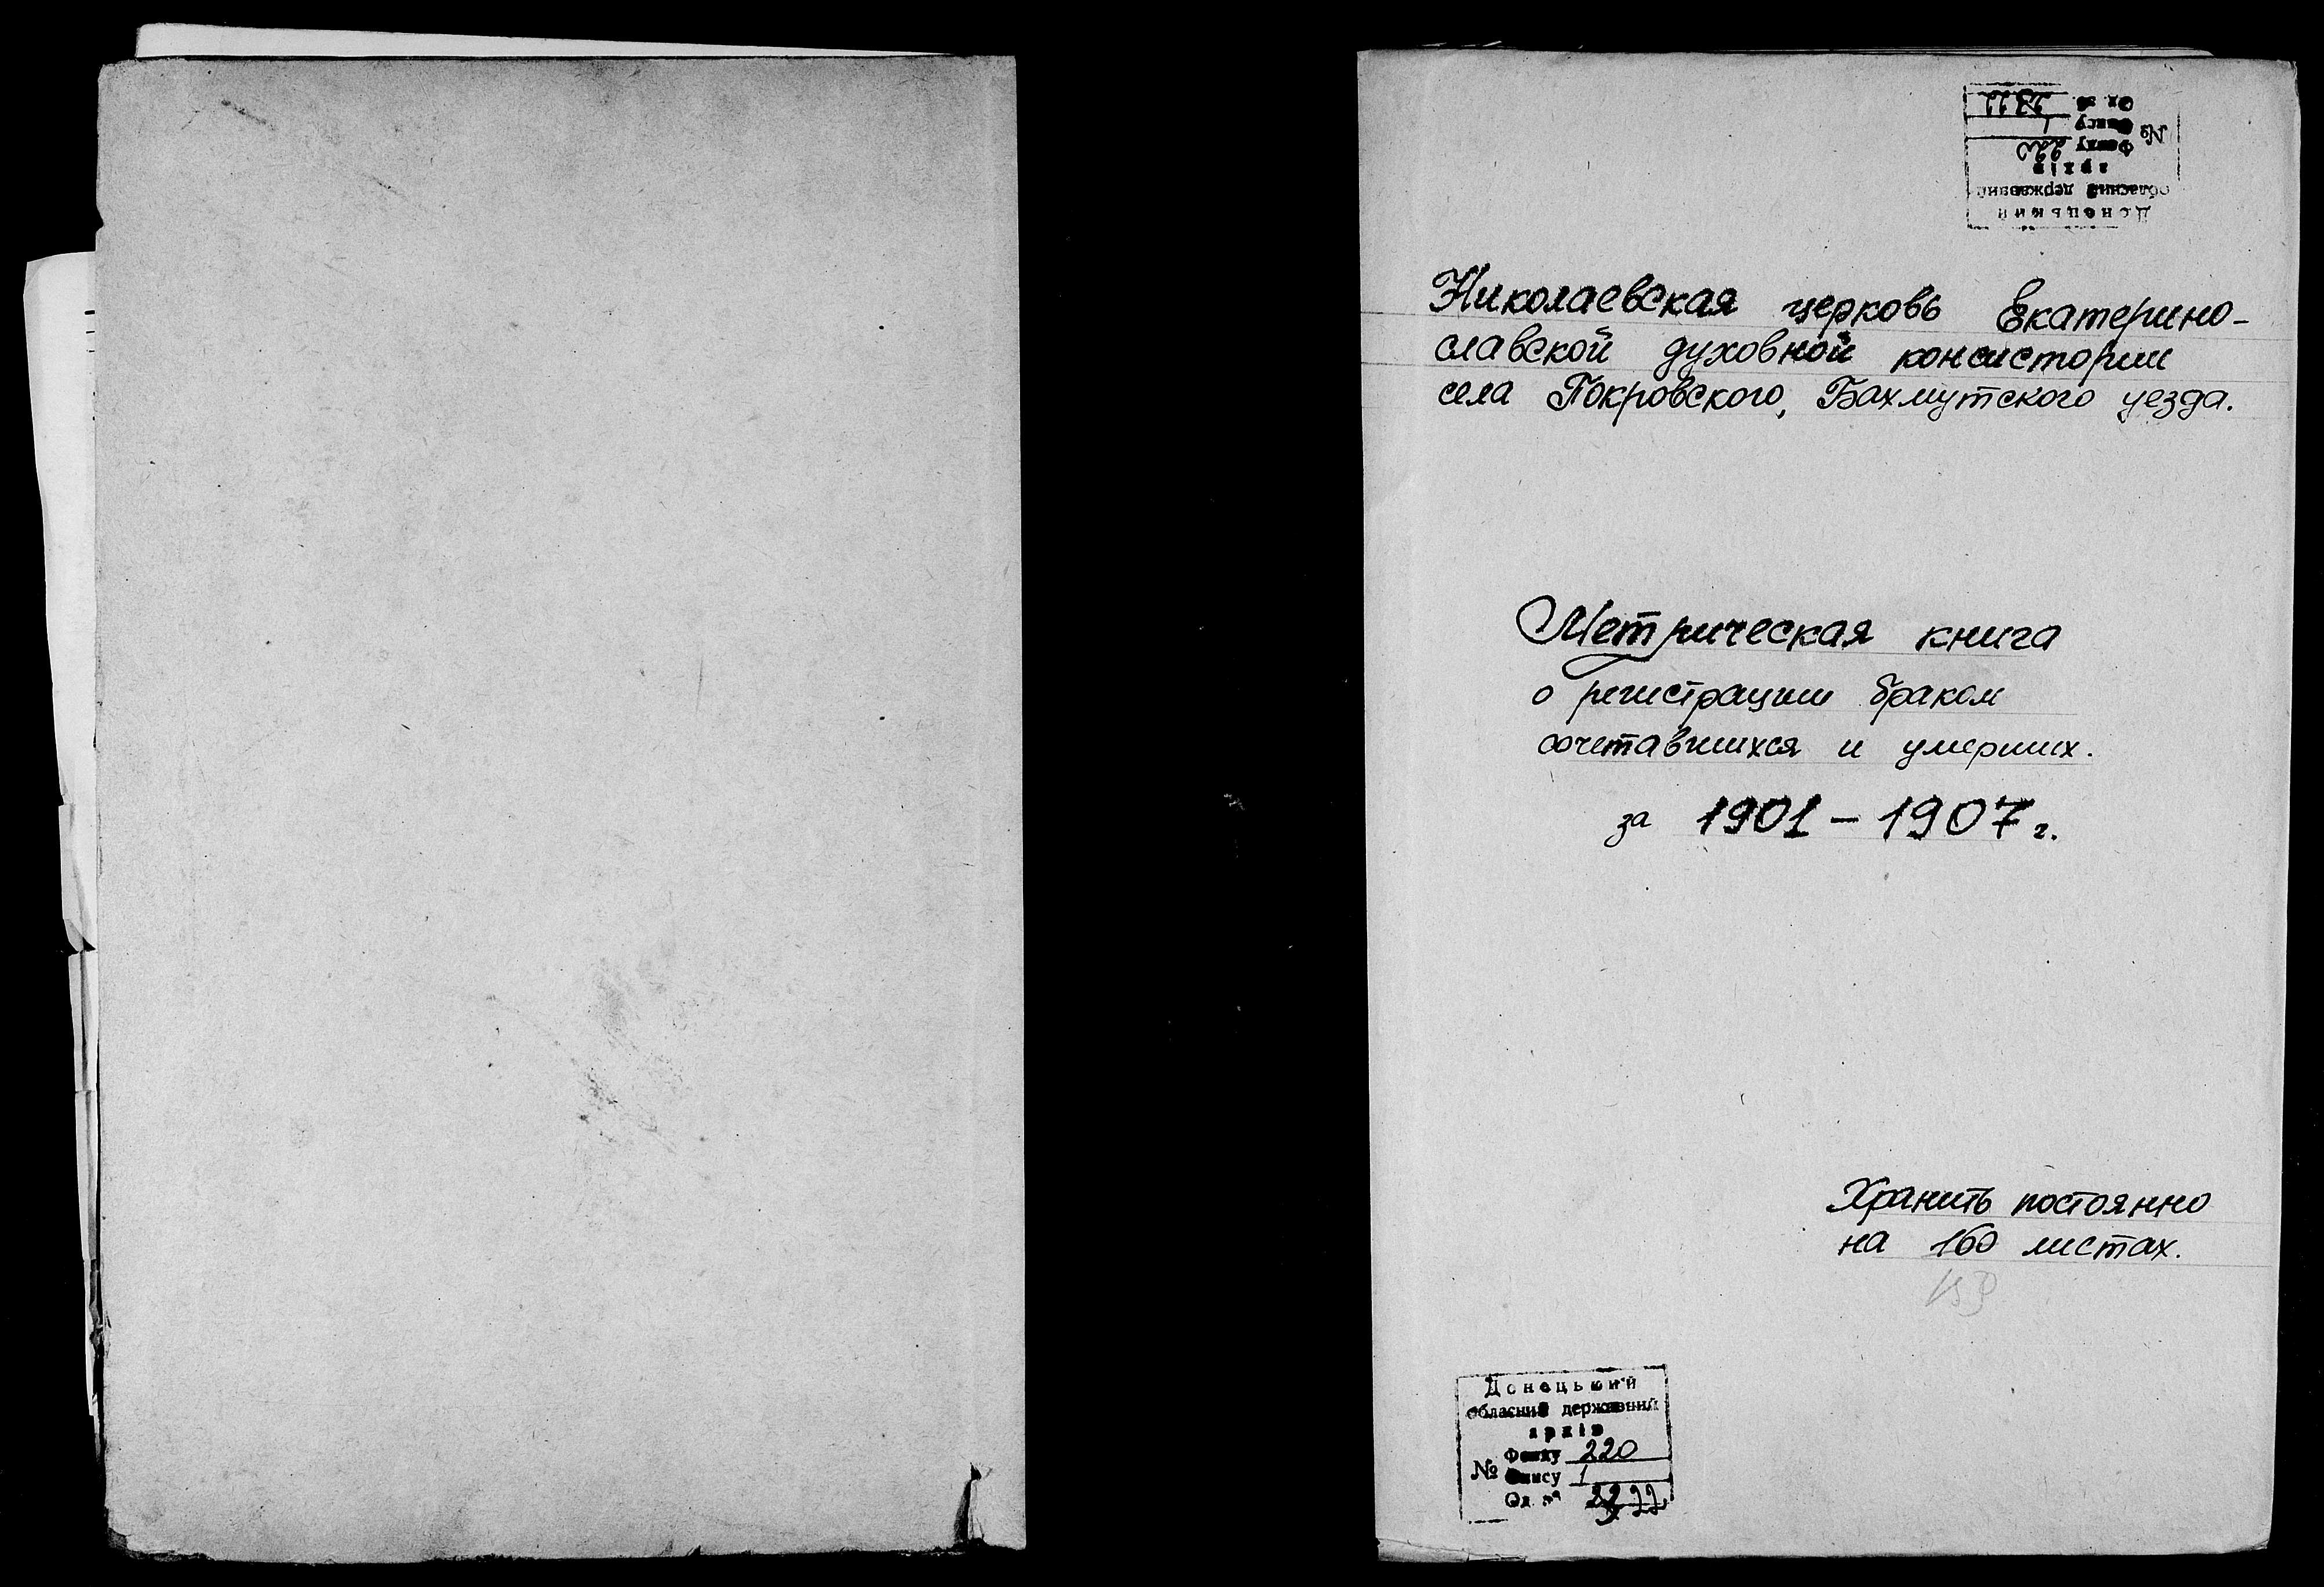 Николаевская церковь Екатерино-
славской духовной консистории
села Покровского, Бахмутского уезда.
Метрическая книга
о регистрации браком
сочетавшихся и умерших.
за 1901 - 1907 г.
Хранить постоянно
на 160 листах.
Донецький
обласний державний
архів
№ Фонду 220
Опису 1
Донецький
обласний державний
архів
№ Фонду 220
Опису 1
Од. зб.